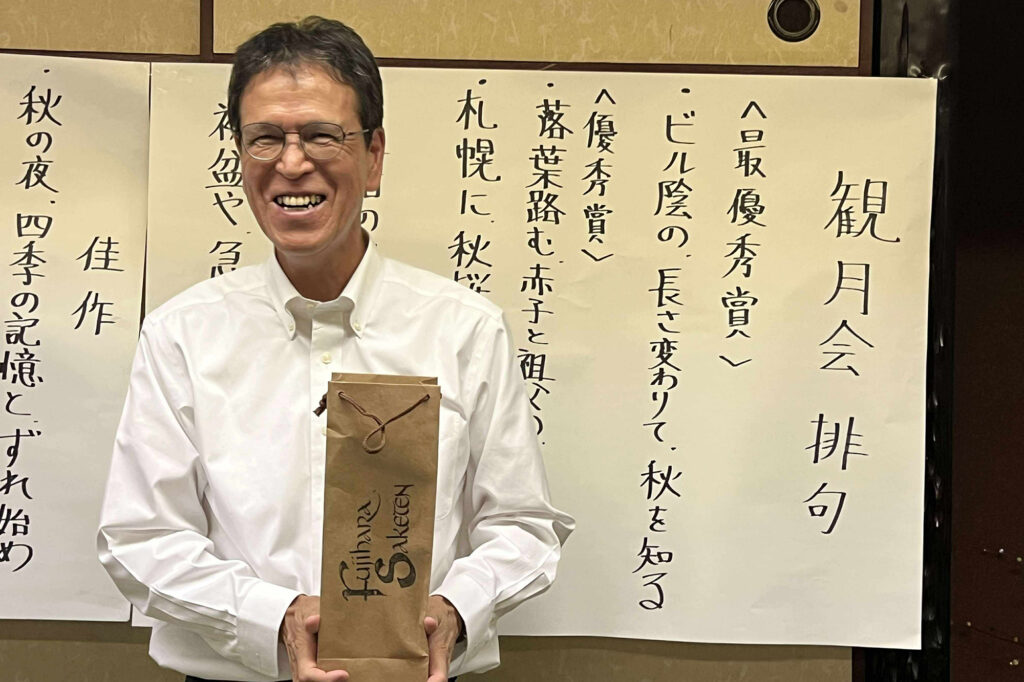 観月会 排句
〈最優秀賞〉
・ビル陰の、長さ変わりて、秋を知る
〈優秀賞〉
・落葉路む、赤子と祖父の、
・札幌に、秋
の
盆や、急
佳作
・秋の夜、四季の記憶と、ずれ始め
FUJIHARA
SAKETEN